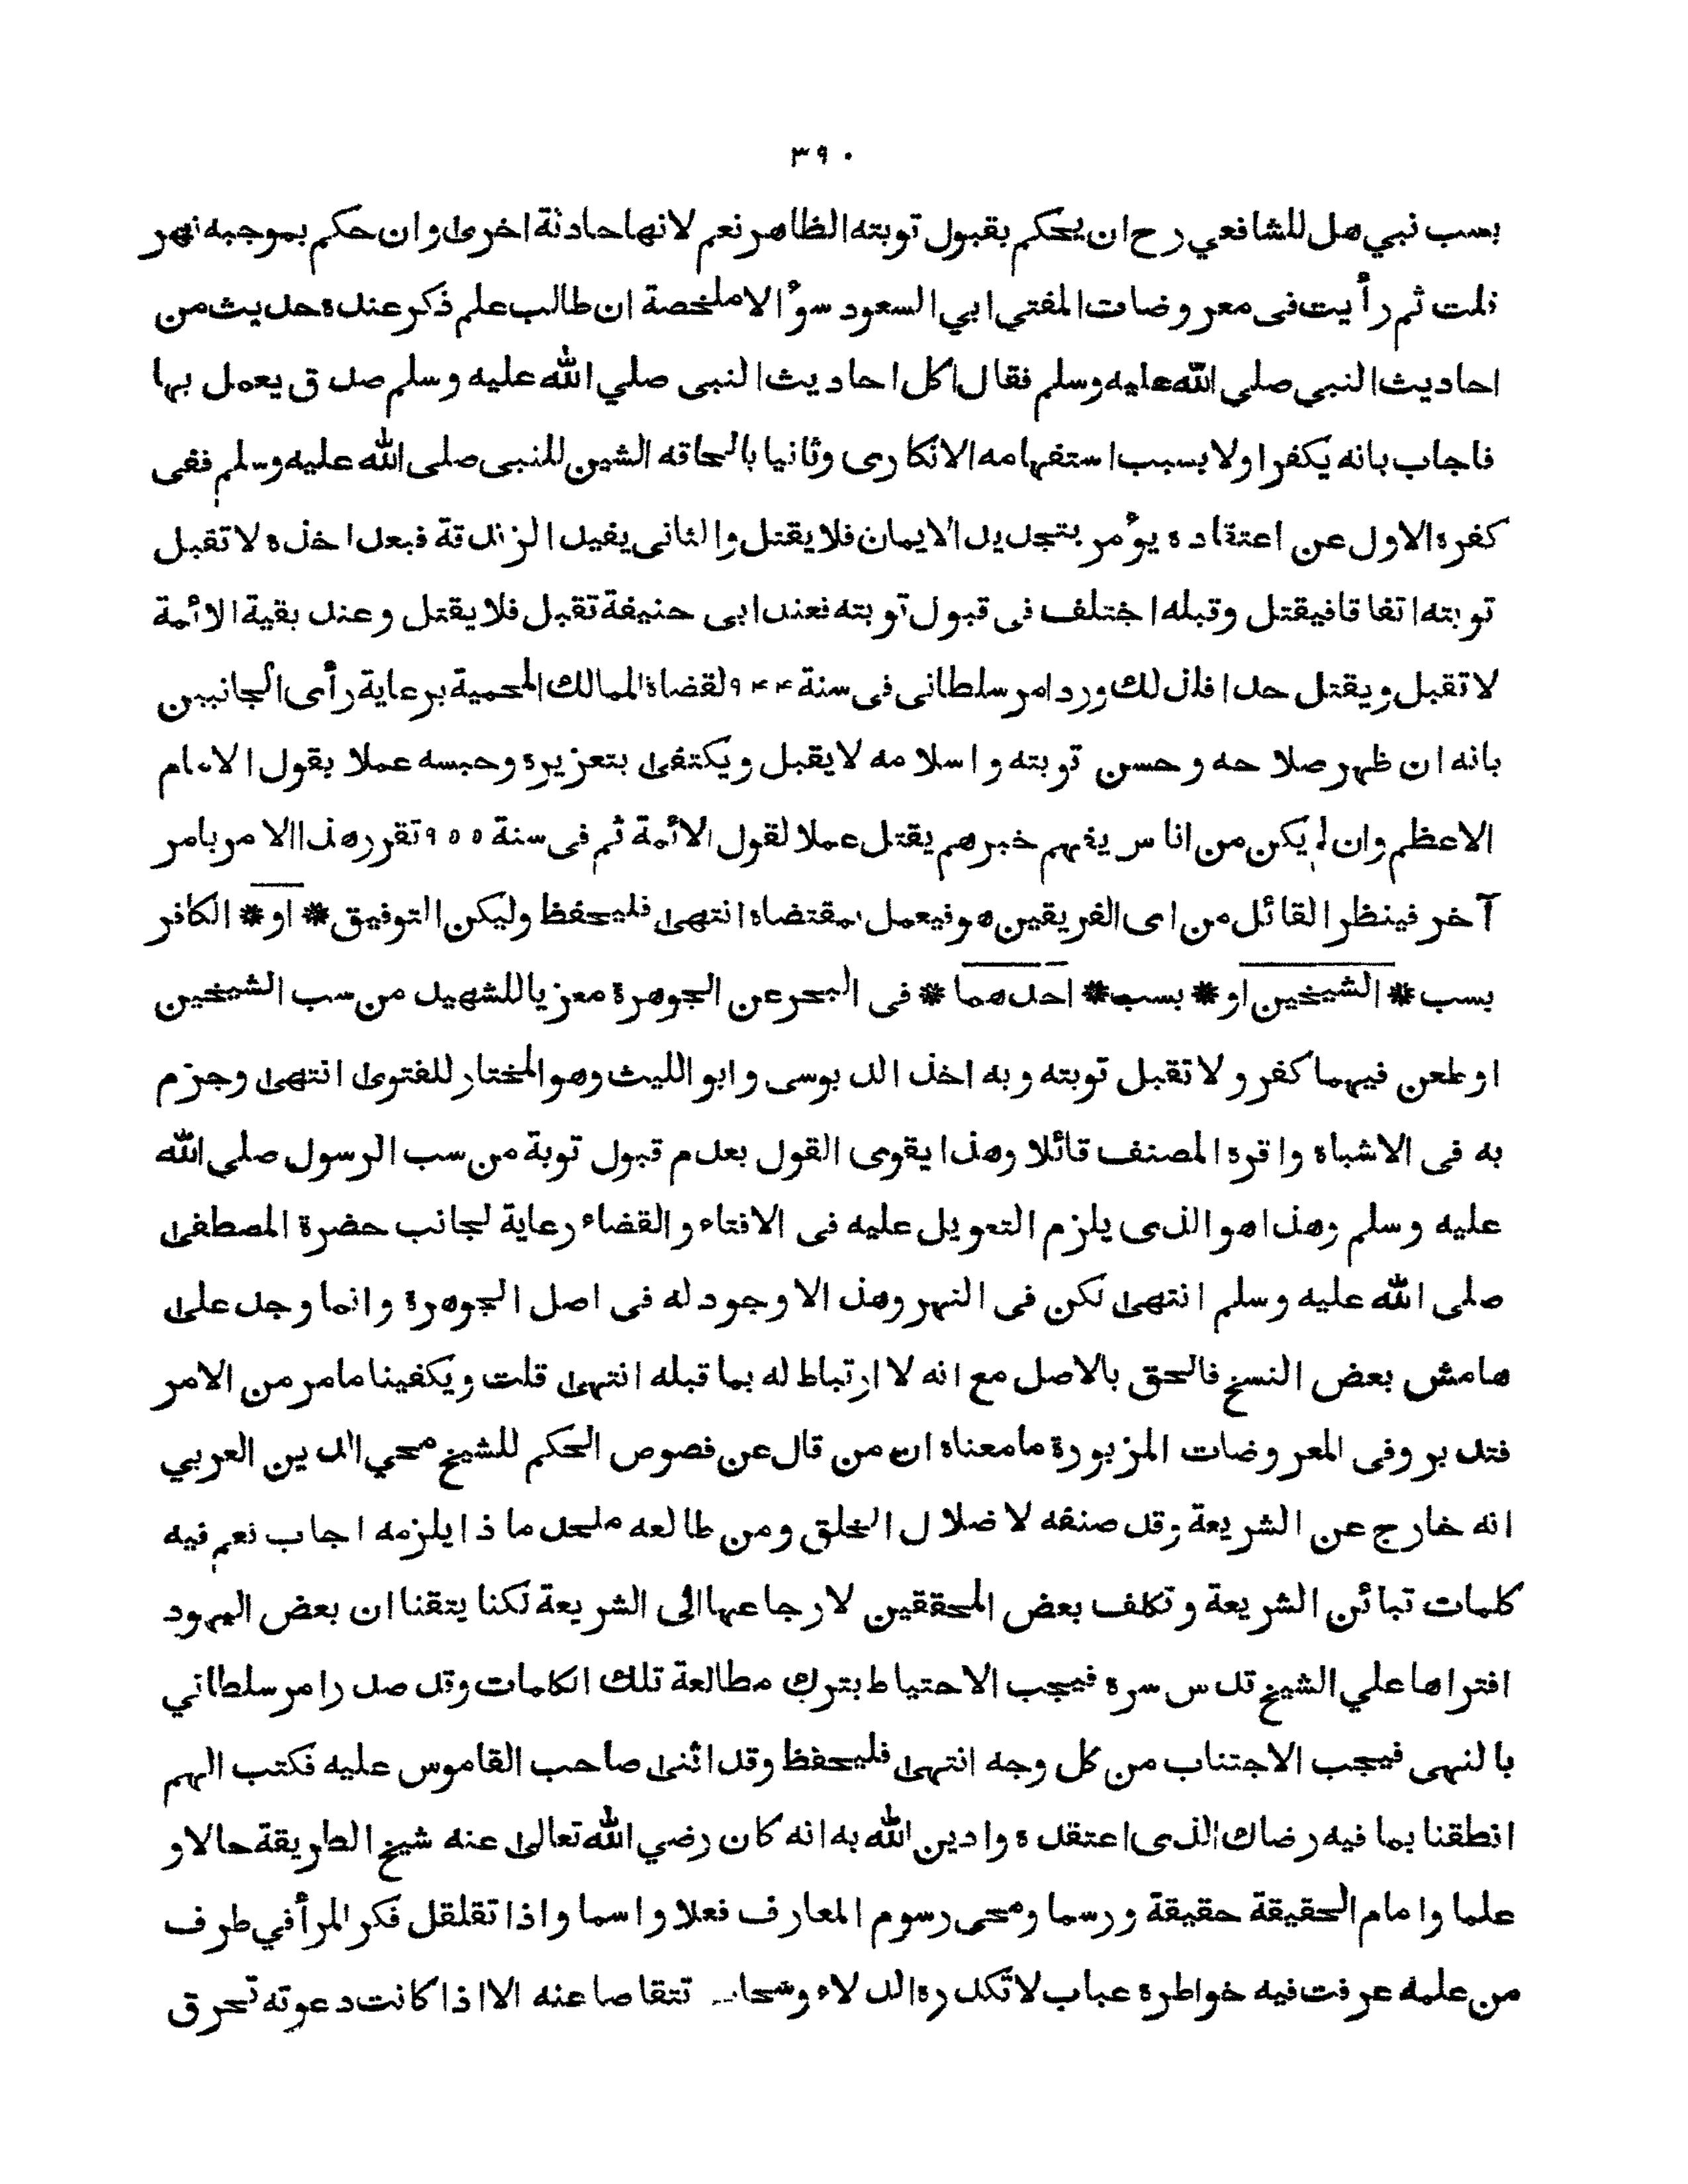 ٣٩٠
بسب نبي هل للشافعي رح ان يحكم بقبول توبته الظاهر نعم لانها حادثة اخرى وان حكم بموجبه نهر
قلت ثم رأيت فى معروضات المفتي ابي السعود سؤالا ملخصة ان طالب علم ذكر عنده حديث من
احاديث النبي صلي الله عليه وسلم فقال اكل احاديث النبى صلي الله عليه وسلم صدق يعمل بها
فاجاب بانه يكفر اولا بسبب استفهامه الانكارى وثانيا بالحاقه الشين للنبى صلى الله عليه وسلم ففى
كفره الاول عن اعتقاده يؤمر بتجديد الايمان فلا يقتل والثانى يفيد الزندقة فبعد اخذه لا تقبل
توبته اتفاقا فيقتل وقبله اختلف فى قبول توبته فعند ابى حنيفة تقبل فلا يقتل وعند بقية الائمة
لا تقبل ويقتل حدا فلذلك ورد امر سلطانى فى سنة ٩٤٤ لقضاة الممالك المحمية برعاية رأى الجانبين
بانه ان ظهر صلاحه وحسن توبته واسلامه لا يقبل ويكتفى بتعزيره وحبسه عملا بقول الامام
الاعظم وان لم يكن من اناس يفهم خبرهم يقتل عملا لقول الائمة ثم فى سنة ٩٥٥ تقرر هذا الامر بامر
آخر فينظر القائل من اى الفريقين هو فيعمل بمقتضاه انتهى فليحفظ وليكن التوفيق * او * الكافر
بسب * الشيخين او * بسب * احدهما * فى البحر عن الجوهرة معزيا للشهيد من سب الشيخين
او طعن فيهما كفر ولا تقبل توبته وبه اخذ الدبوسى وابو الليث وهو المختار للفتوى انتهى وجزم
به فى الاشباه واقره المصنف قائلا وهذا يقوى القول بعدم قبول توبة من سب الرسول صلي الله
عليه وسلم وهذا هو الذى يلزم التعويل عليه فى الافتاء والقضاء رعاية لجانب حضرة المصطفى
صلى الله عليه وسلم انتهى لكن فى النهر وهذا لا وجود له فى اصل الجوهرة وانما وجد على
هامش بعض النسخ فالحق بالاصل مع انه لا ارتباط له بما قبله انتهى قلت ويكفينا ما مر من الامر
فتدبر وفى المعروضات المزبورة ما معناه ان من قال عن فصوص الحكم للشيخ محي الدين العربي
انه خارج عن الشريعة وقد صنفه لاضلال الخلق ومن طالعه ملحد ماذا يلزمه اجاب نعم فيه
كلمات تبائن الشريعة وتكلف بعض المحققين لارجاعها الى الشريعة لكنا يتقنا ان بعض اليهود
افتراها علي الشيخ قدس سره فيجب الاحتياط بترك مطالعة تلك الكلمات وقد صدر امر سلطاني
بالنهى فيجب الاجتناب من كل وجه انتهى فليحفظ وقد اثنى صاحب القاموس عليه فكتب الهم
انطقنا بما فيه رضاك الذى اعتقده وادين الله به انه كان رضي الله تعالى عنه شيخ الطريقة حالا و
علما وامام الحقيقة حقيقة ورسما ومحى رسوم المعارف فعلا واسما واذا تقلقل فكر المرأ في طرف
من علمه عرفت فيه خواطره عباب لا تكدره الدلاء وسحاب تتقاصا عنه الا اذا كانت دعوته تحرق